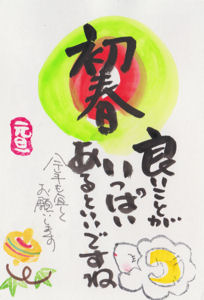 初春
良いことが
いっぱい
あるといいですね
今年も宜しく
お願いします
元旦